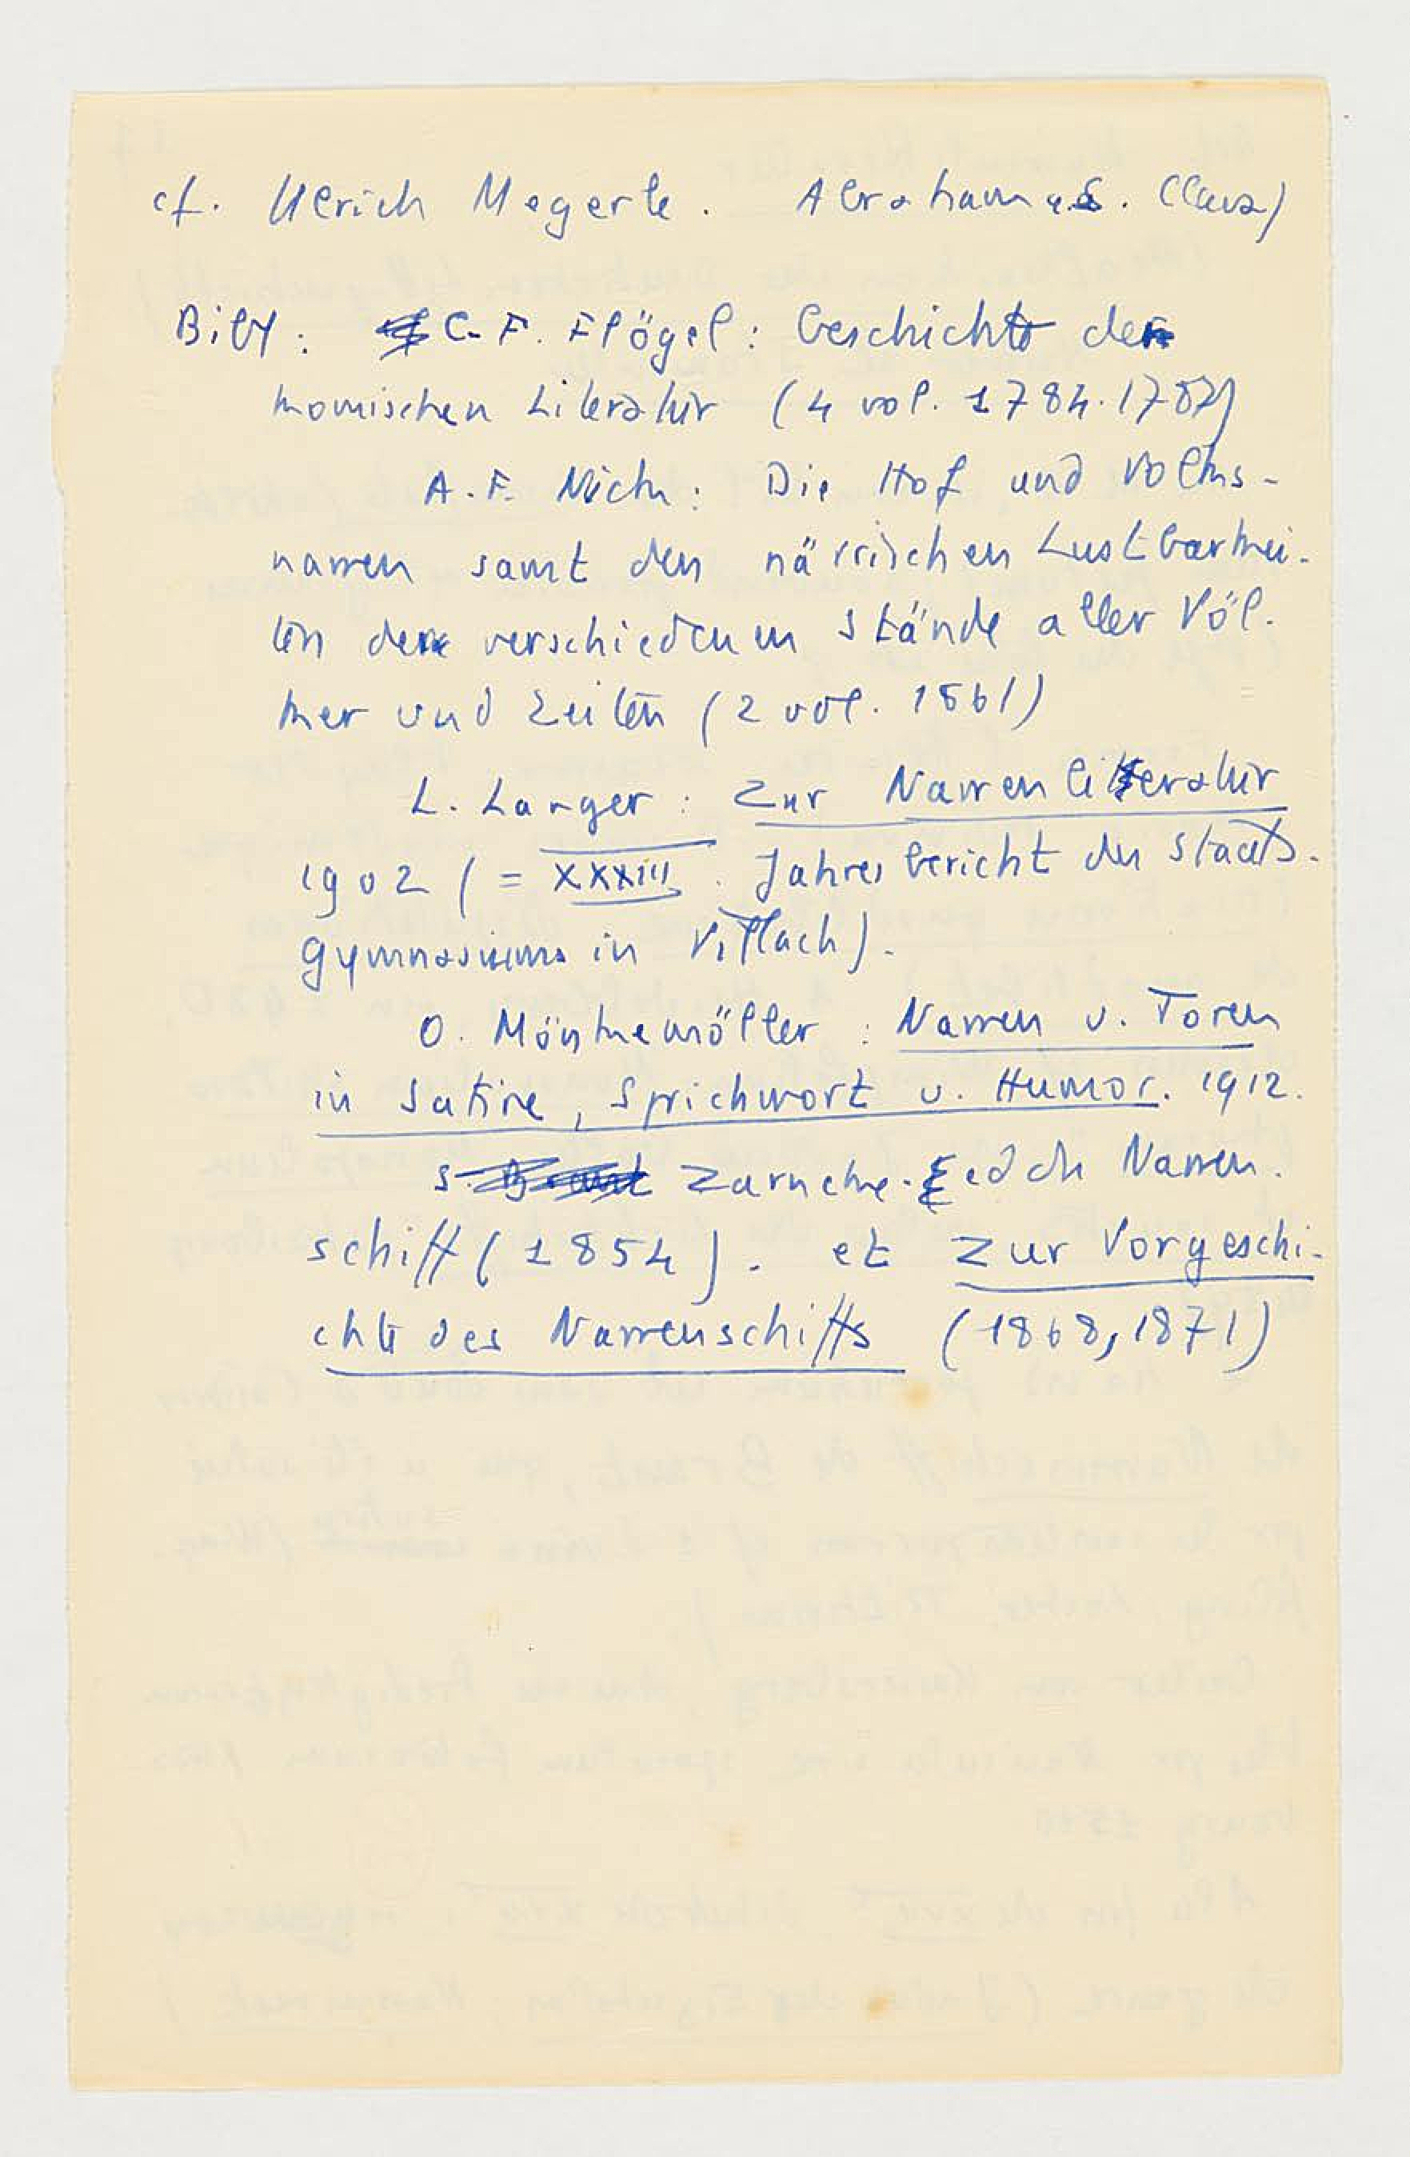 cf. Ulrich Megerle. Abraham a.S. Clara)
Bibl: C.F. Flögel: Geschichte der
komischen Literatur (4 vol. 1784.1787)
A.F. Nick: Die Hof und Volks-
narren samt den närrischen Lustbarkei-
ten der verschiedenen Stände aller Völ-
ker und Zeiten (2 vol. 1861)
L. Langer: Zur Narrenliteratur
1902 (= XXXIII. Jahresbericht des Staats-
gymnasiums in Villach).
O. Mönkemöller: Narren u. Toren
in Satire, Sprichwort u. Humor. 1912.
Zarncke. ed de Narren-
schiff (1854). et Zur Vorgeschi-
chte des Narrenschiffs (1868, 1871)